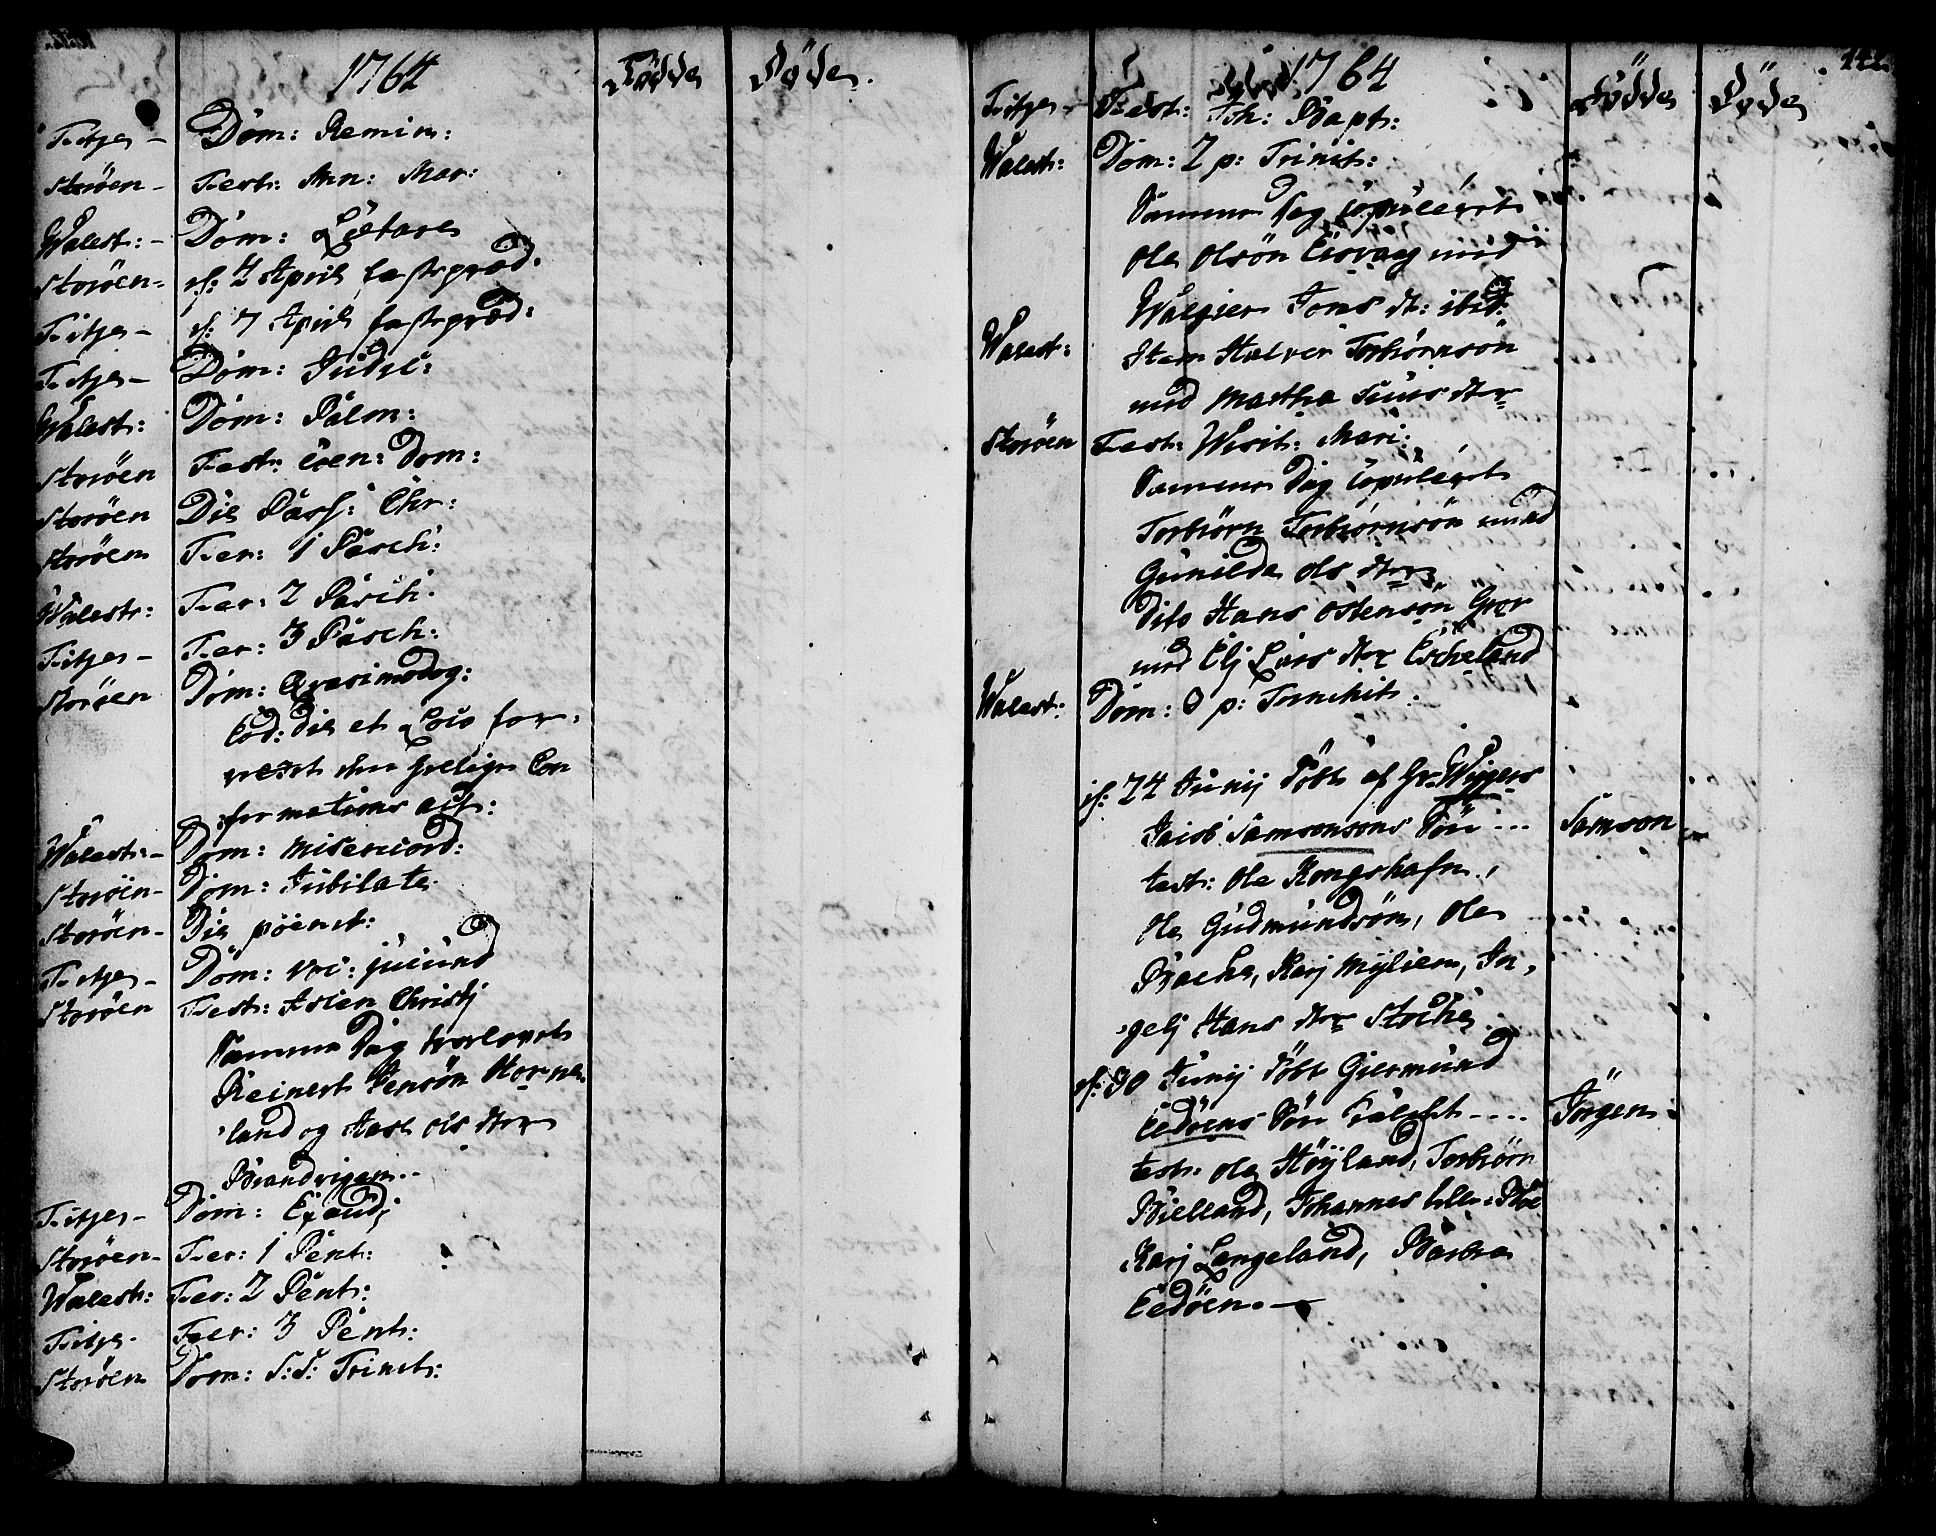 1764 Födde Döde.
Fitjer - Dom: Remin:
Storöen - Fest: Ann: Mar:
Walest: - Dom: Lætare
Storöen - d: 4 April fastepræd:
Fitjer - d: 7 April fastepræd:
Fitjer - Dom: Judic:
Walest: Dom: Palm:
Storöen Fest: Coen: Dom:
Storöen Die Pass: Chr:
Storöen Fer: 1 Pasch:
Walestr: Fer: 2 Pasch:
Fitjer - Fer: 3 Pasch:
Storöen Dom: Qvasimodog:
Eod: Die et Loco for-
rett den Con
formations act:
Walestr: - Dom: Misericord:
Storöen - Dom: Jubilate
Storöen - Die pöenit:
Fitjer - Dom: voc: jucund
Storöen Fest: Ascen Christj
Samme Dag trorlovet
Reinert Jensön
land og ols dtr
Fitjer - Dom: Exaudj
Storöen - Fer: 1 Pent:
Walest: Fer: 2 Pent:
Fitjer - Fer: 3 Pent:
Storöen Dom: S: S: Trinit:
1764 Födde Döde
Fitjer - Fest: Joh: Bapt:
Walest: Dom: 2 p: Trinit:
Samme Dag Copuleret
Ole Olsön med
Jons dt: ibid:
Walest: Item Halver Torbiörnsön
med Martha dtr
Storöen Fest: Visit: Mari:
Samme Dag Copuleret
Torbiörn Torbiörnsön med
Gunilda ols dtr
Dito Hans Ostensön
med Elj Lars dtr Eskeland
Walest: Dom: 3 p: Trinit:
d: 24 Junij Döbt af Hr: Wiggers
Jacob Samsonsons Sön ... Samson
test: Ole Kongshafn,
Ole Gudmundsön, Ole
Backe, Karj In-
gelj Hans dtr
d: 30 Junij Döbt Giermund
Eedöens Sön kaldet .... Jörgen
test: Ole Höyland, Torbiörn
Bielland, Johannes
Karj Langeland, Barbra
Eedöen.